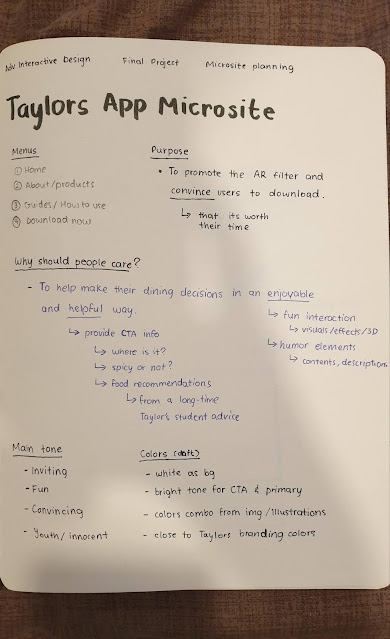 Adv Interactive Design
Final Project
Microsite planning
Taylors App Microsite
Menus
① Home
② About/products
③ Guides/ How to use
④ Download now
Purpose
• To promote the AR filter and
convince users to download.
↳ that its worth
their time
Why should people care?
- To help make their dining decisions in an enjoyable
and helpful way.
↳ provide CTA info
↳ where is it?
↳ spicy or not?
↳ food recommendations
↳ from a long-time
Taylor's student advice
↳ fun interaction
↳ visuals/effects/3D
↳ humor elements
↳ contents, description
Main tone
- Inviting
- Fun
- Convincing
- Youth/ innocent
Colors (draft)
- white as bg
- bright tone for CTA & primary
- colors combo from img /Illustrations
- close to Taylors branding colors